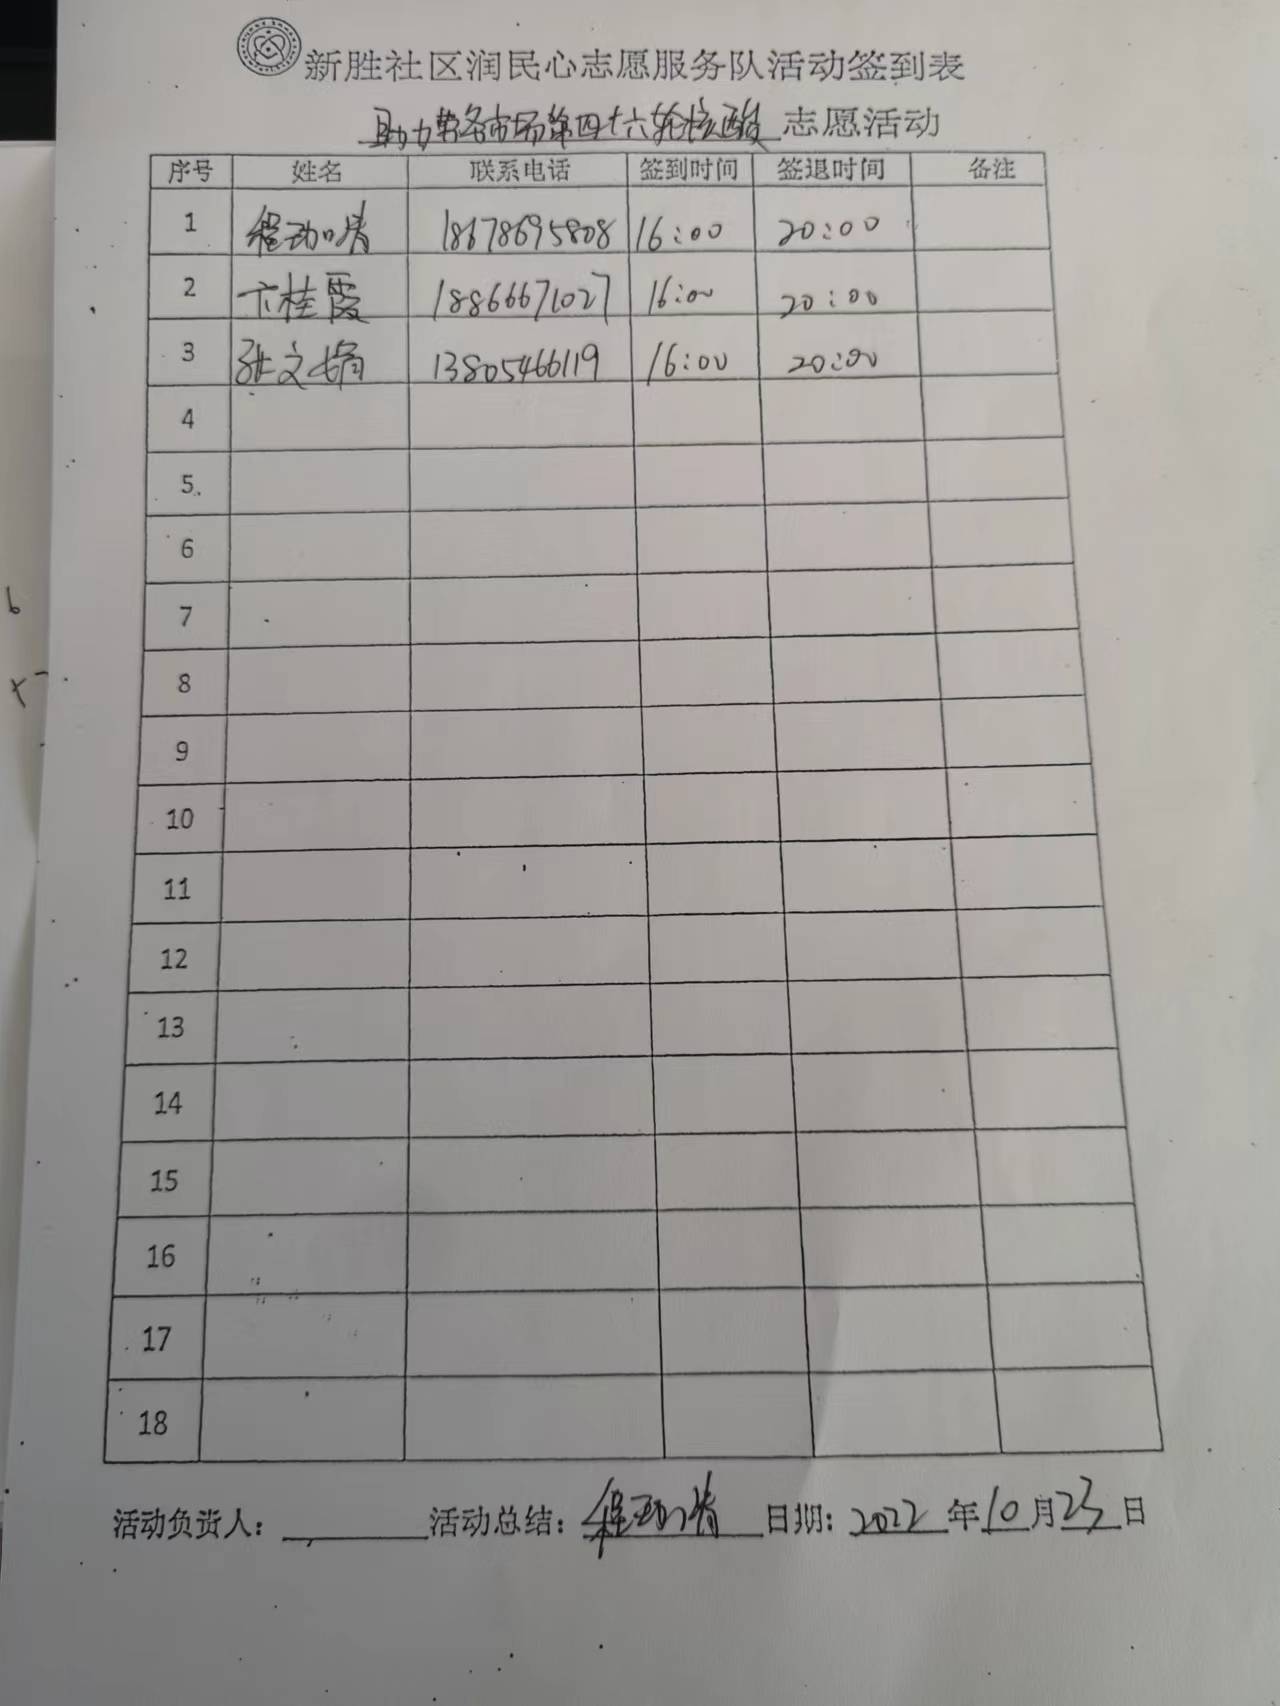 新胜社区润民心志愿服务队活动签到表
助力劳务市场第四十六轮核酸 志愿活动
序号 姓名 联系电话 签到时间 签退时间 备注
1 18678695808 16:00 20:00
2 卞桂霞 18866671027 16:00 20:00
3 张文娟 13805466119 16:00 20:00
4
5
6
7
8
9
10
11
12
13
14
15
16
17
18
活动负责人: 活动总结: 日期: 2022 年 10 月 23 日